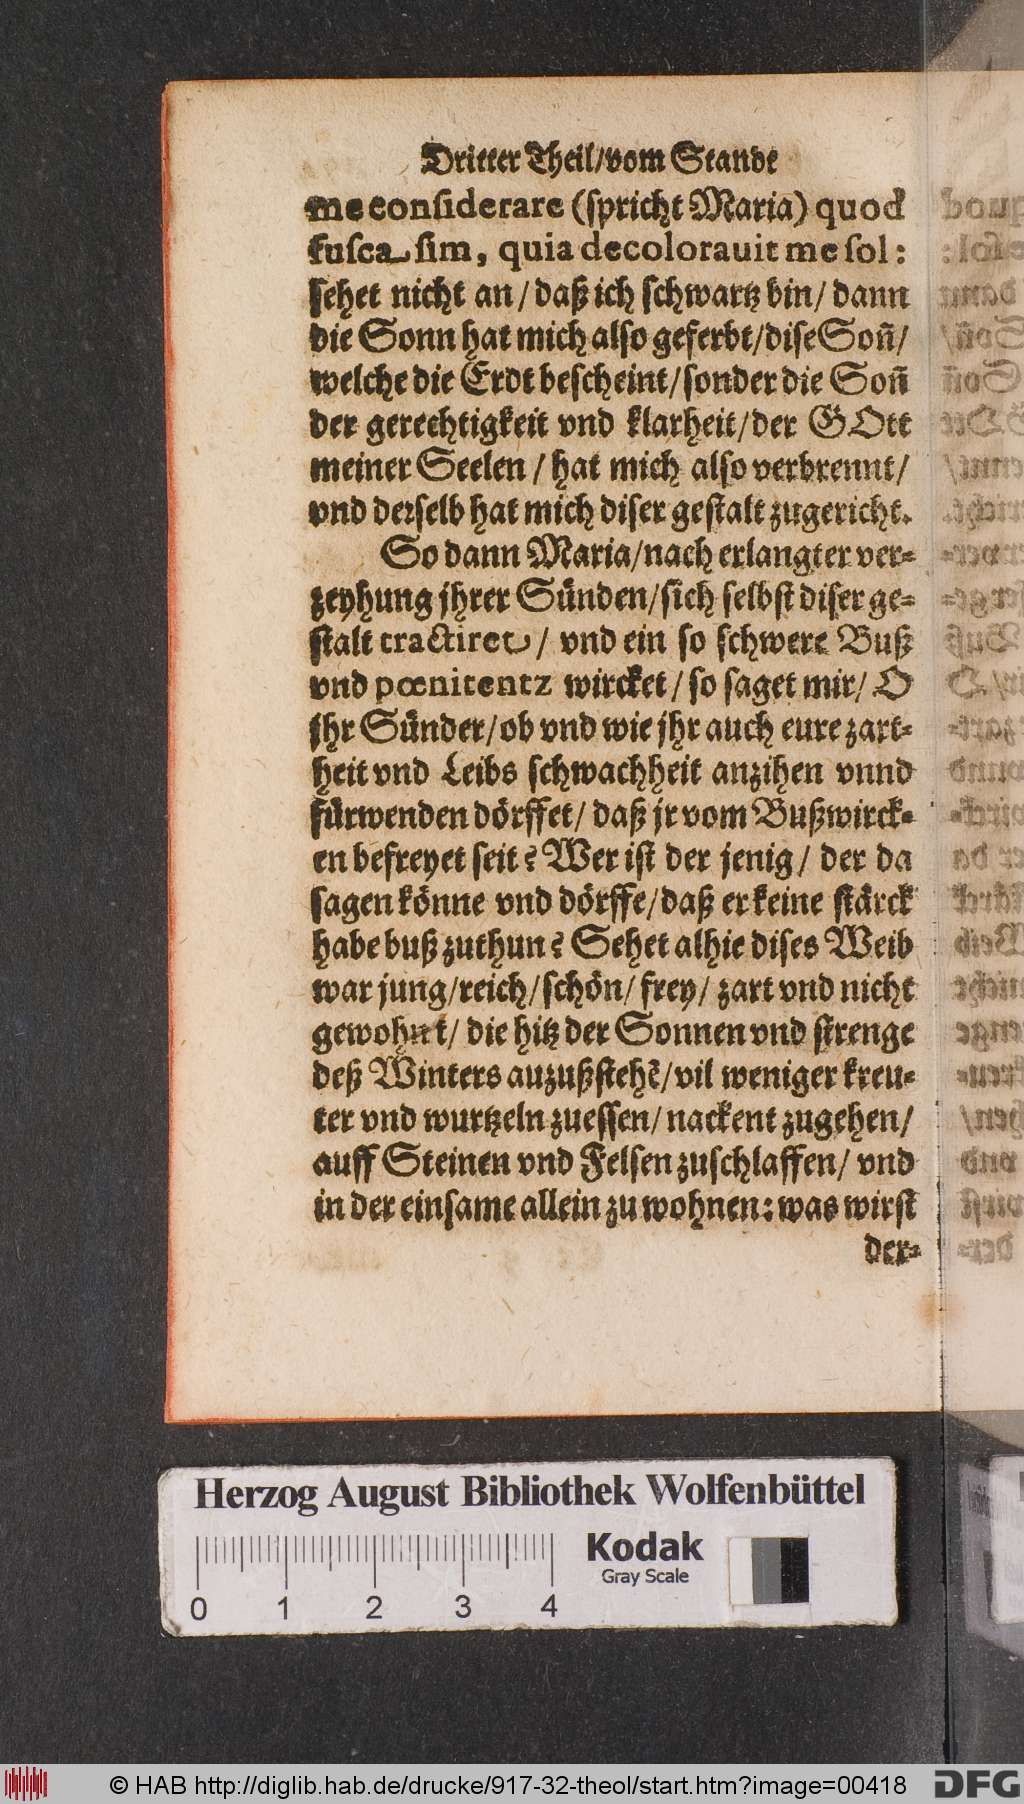 Dritter Theil/vom Stande
me conſiderare (ſpricht Maria) quod
fuſca ſim, quia decolorauit me ſol:
ſehet nicht an/ daß ich ſchwartz bin/ dann
die Sonn hat mich alſo geferbt/diſe Soñ/
welche die Erdt beſcheint/ſonder die Soñ
der gerechtigkeit vnd klarheit/der GOtt
meiner Seelen / hat mich alſo verbrennt/
vnd derſelb hat mich diſer geſtalt zugericht.
So dann Maria/nach erlangter ver-
zeyhung jhrer Sünden/ſich ſelbſt diſer ge-
ſtalt tractiret/ vnd ein ſo ſchwere Buß
vnd pœnitentz wircket/ ſo ſaget mir/ O
jhr Sünder/ob vnd wie jhr auch eure zart-
heit vnd Leibs ſchwachheit anzihen vnnd
fürwenden dörffet/ daß jr vom Bußwirck-
en befreyet ſeit? Wer iſt der jenig/ der da
ſagen könne vnd dörffe/daß er keine ſtärck
habe buß zuthun? Sehet alhie diſes Weib
war jung/reich/ſchön/ frey/ zart vnd nicht
gewohnt/ die hitz der Sonnen vnd ſtrenge
deß Winters auzußſtehẽ/vil weniger kreu-
ter vnd wurtzeln zueſſen/ nackent zugehen/
auff Steinen vnd Felſen zuſchlaffen/ vnd
in der einſame allein zu wohnen: was wirſt
der-
Herzog August Bibliothek Wolfenbüttel
Kodak
Gray Scale
0 1 2 3 4
© HAB http://diglib.hab.de/drucke/917-32-theol/start.htm?image=00418
DFG